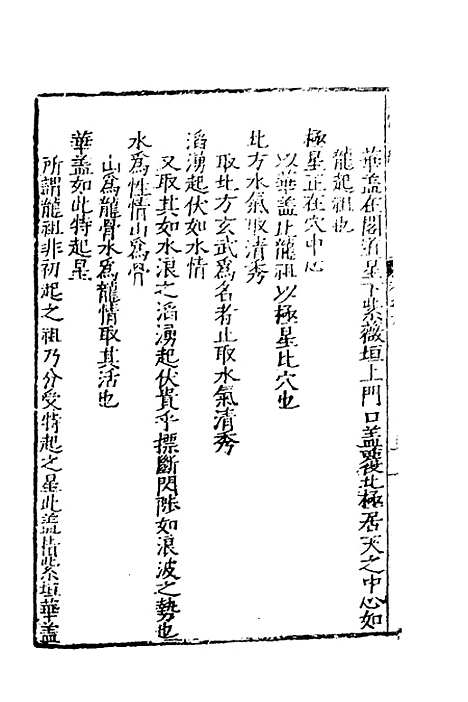 華盖在閣道星下紫薇垣上門口盖覆北極居天之中心如
龍起祖也
極星正在穴中心
以華盖止龍祖以極星比穴也
北方水氣取清秀
取北方玄武爲名者止取水氣清秀
滔湧起伏如水情
又取其如水浪之滔湧起伏貴乎摽斷閃跌如浪波之勢也
水爲性情山爲骨
山爲龍骨水爲龍情取其活也
華盖如此特起星
所謂龍祖非初起之祖乃分受特起之星此盖借紫垣華盖